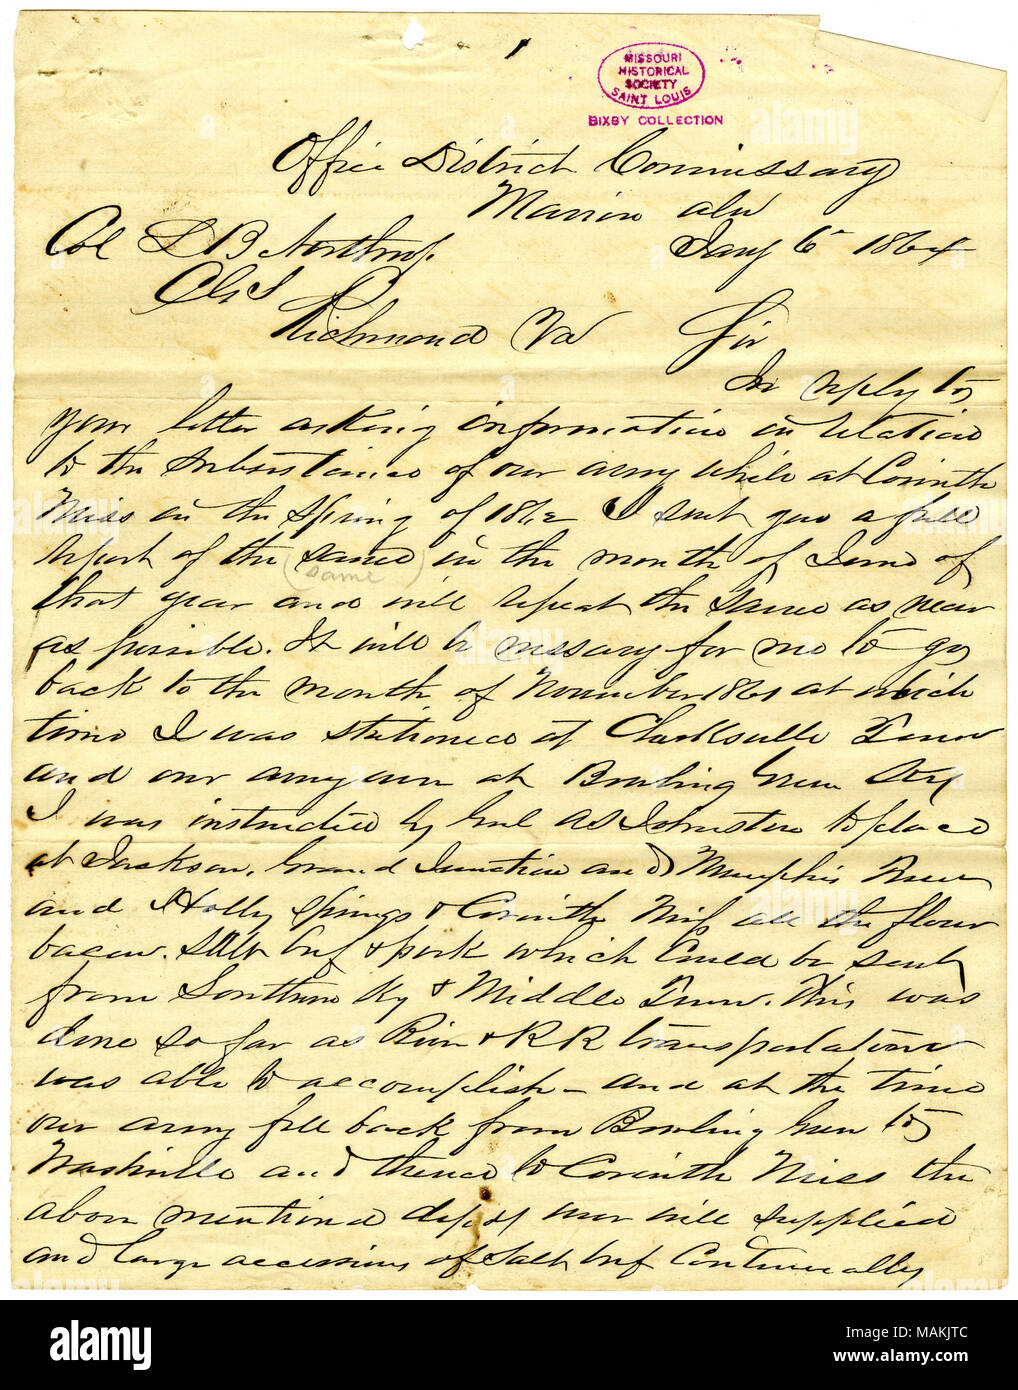 MISSOURI
HISTORICAL
SOCIETY
SAINT LOUIS
BIXBY COLLECTION
Office District Commissary
Marion ala
Col L B Northrop. Jany 6 1864
C G S
Richmond Va Sir
In reply to
your letter asking information in relation
to the subsistence of our army while at Corinth
Miss in the spring of 1862 I sent you a full
report of the same in the month of June of
(same)
that year and will repeat the same as near
as possible. It will be nessary for me to go
back to the month of November 1861 at which
time I was stationed at Clarksville Tenn
and our army was at Bowling Green Ky
I was instructed by Genl A S Johnston to place
at Jackson, Grand Junction and Memphis Tenn
and Holly Springs & Corinth Miss all the flour
bacon. Salt beef & pork which could be sent
from Southern Ky & Middle Tenn. This was
done so far as River & R R transportation
was able to accomplish – and at the time
our army fell back from Bowling Green to
Nashville and thence to Corinth Miss the
above mentioned depots were well supplied
and large accessions of Salt beef Continually
alamy
Image ID: MAKJTC
www.alamy.com